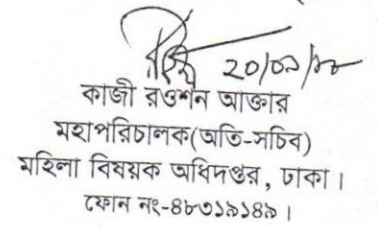 ২০/০৯/১৮
কাজী রওশন আক্তার
মহাপরিচালক(অতি-সচিব)
মহিলা বিষয়ক অধিদপ্তর, ঢাকা।
ফোন নং-৪৮৩১৯১৪৯।